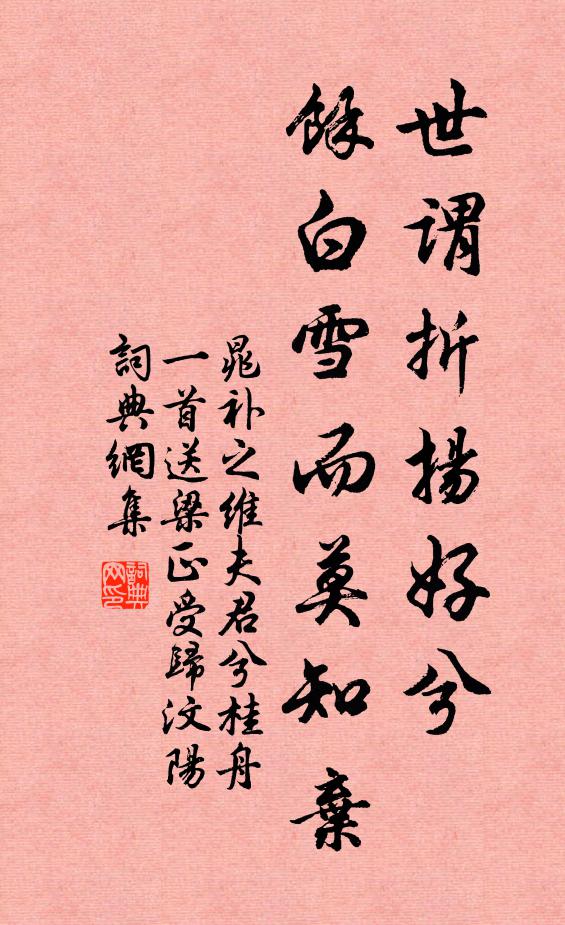 世謂折揚好兮
餘白雪而莫知棄
晁补之維夫君兮桂舟
一首送梁正受歸汶陽
詞典網集
詞典网印